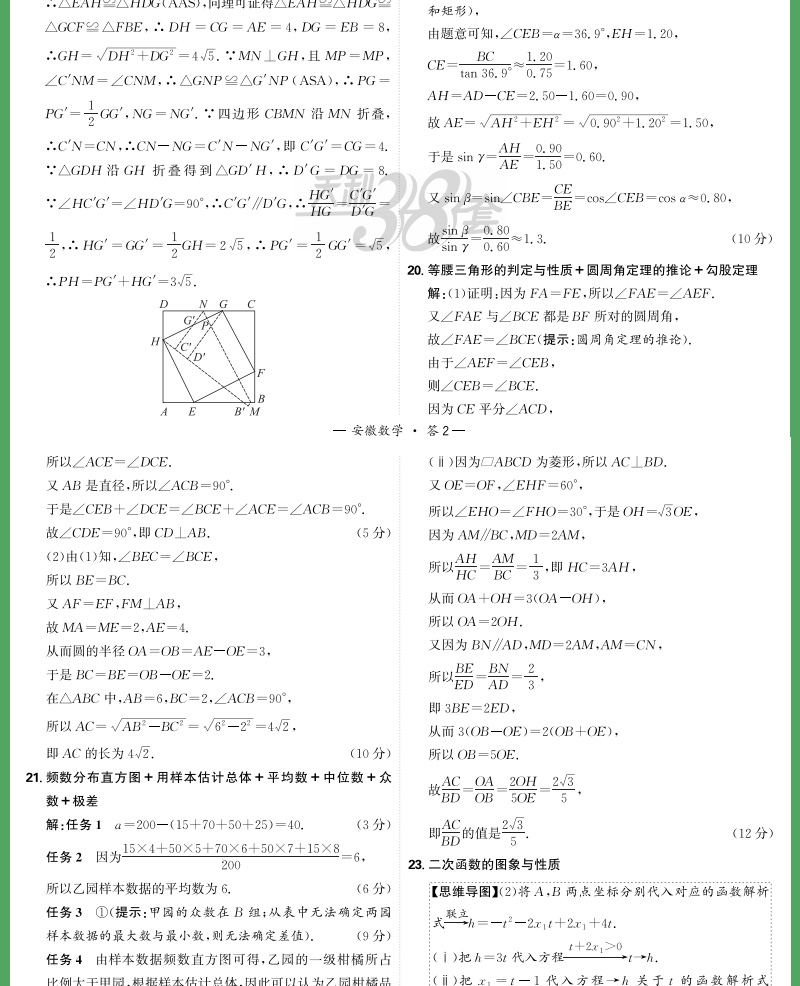 ∴△EAH≌△HDG(AAS),同理可证得△EAH≌△HDG≌
△GCF≌△FBE,∴DH=CG=AE=4,DG=EB=8,
∴GH=√(DH²+DG²)=4√5.∵MN⊥GH,且MP=MP,
∠C′NM=∠CNM,∴△GNP≌△G′NP(ASA),∴PG=
PG′=1/2GG′,NG=NG′.∵四边形CBMN沿MN折叠,
∴C′N=CN,∴CN-NG=C′N-NG′,即C′G′=CG=4.
∵△GDH沿GH折叠得到△GD′H,∴D′G=DG=8.
∵∠HC′G′=∠HD′G=90°,∴C′G′∥D′G,∴HG′/HG=C′G′/D′G=
1/2,∴HG′=GG′=1/2GH=2√5,∴PG′=1/2GG′=√5,
∴PH=PG′+HG′=3√5.
D N G C
G′ P
H C′
D′
F
B
A E B′ M
和矩形),
由题意可知,∠CEB=α=36.9°,EH=1.20,
CE=BC/tan 36.9°≈1.20/0.75=1.60,
AH=AD-CE=2.50-1.60=0.90,
故AE=√(AH²+EH²)=√(0.90²+1.20²)=1.50,
于是sin γ=AH/AE=0.90/1.50=0.60.
又sin β=sin∠CBE=CE/BE=cos∠CEB=cos α≈0.80,
故sin β/sin γ=0.80/0.60≈1.3. (10分)
20. 等腰三角形的判定与性质+圆周角定理的推论+勾股定理
解:(1)证明:因为FA=FE,所以∠FAE=∠AEF.
又∠FAE与∠BCE都是BF所对的圆周角,
故∠FAE=∠BCE(提示:圆周角定理的推论).
由于∠AEF=∠CEB,
则∠CEB=∠BCE.
因为CE平分∠ACD,
— 安徽数学 · 答2 —
所以∠ACE=∠DCE.
又AB是直径,所以∠ACB=90°.
于是∠CEB+∠DCE=∠BCE+∠ACE=∠ACB=90°.
故∠CDE=90°,即CD⊥AB. (5分)
(2)由(1)知,∠BEC=∠BCE,
所以BE=BC.
又AF=EF,FM⊥AB,
故MA=ME=2,AE=4.
从而圆的半径OA=OB=AE-OE=3,
于是BC=BE=OB-OE=2.
在△ABC中,AB=6,BC=2,∠ACB=90°,
所以AC=√(AB²-BC²)=√(6²-2²)=4√2,
即AC的长为4√2. (10分)
21. 频数分布直方图+用样本估计总体+平均数+中位数+众
数+极差
解:任务1 a=200-(15+70+50+25)=40. (3分)
任务2 因为(15×4+50×5+70×6+50×7+15×8)/200=6,
所以乙园样本数据的平均数为6. (6分)
任务3 ①(提示:甲园的众数在B组;从表中无法确定两园
样本数据的最大数与最小数,则无法确定差值). (9分)
任务4 由样本数据频数直方图可得,乙园的一级柑橘所占
比例大于甲园,根据样本估计总体,因此可以认为乙园柑橘品
(ⅱ)因为▱ABCD为菱形,所以AC⊥BD.
又OE=OF,∠EHF=60°,
所以∠EHO=∠FHO=30°,于是OH=√3OE,
因为AM∥BC,MD=2AM,
所以AH/HC=AM/BC=1/3,即HC=3AH,
从而OA+OH=3(OA-OH),
所以OA=2OH.
又因为BN∥AD,MD=2AM,AM=CN,
所以BE/ED=BN/AD=2/3,
即3BE=2ED,
从而3(OB-OE)=2(OB+OE),
所以OB=5OE.
故AC/BD=OA/OB=2OH/5OE=2√3/5,
即AC/BD的值是2√3/5. (12分)
23. 二次函数的图象与性质
【思维导图】(2)将A,B两点坐标分别代入对应的函数解析
式 联立→h=-t²-2x₁t+2x₁+4t.
(ⅰ)把h=3t代入方程 t+2x₁>0→t→h.
(ⅱ)把x₁=t-1代入方程→h关于t的函数解析式